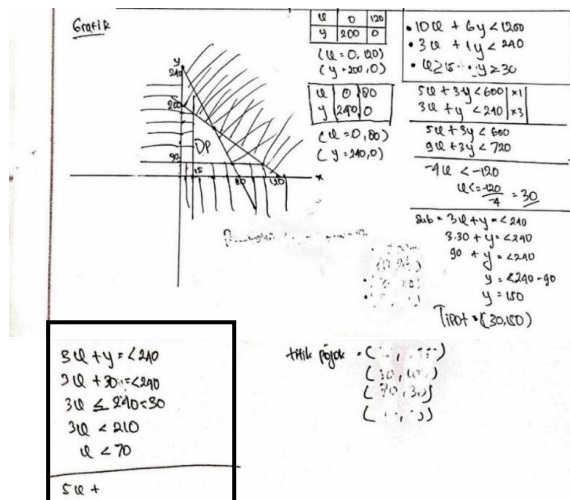 Grafik
y
240
200
30
DP
15
80
120
x
x 0 120
y 200 0
(x = 0, 120)
(y = 200, 0)
x 0 80
y 240 0
(x = 0, 80)
(y = 240, 0)
• 10x + 6y < 1200
• 3x + 1y < 240
• x ≥ 15 • y ≥ 30
5x + 3y < 600 | x1
3x + y < 240 | x3
5x + 3y < 600
9x + 3y < 720
-4x < -120
x <= -120/-4 = 30
Sub = 3x + y = < 240
3.30 + y = < 240
90 + y = < 240
y = < 240 - 90
y = 150
Tipot = (30,150)
3x + y = < 240
3x + 30 = < 240
3x ≤ 240 - 30
3x < 210
x < 70
5x +
titik pojok